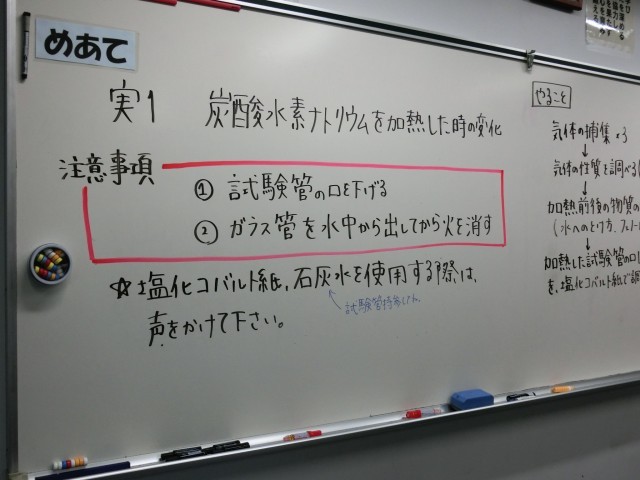 めあて
実1 炭酸水素ナトリウムを加熱した時の変化
注意事項
① 試験管の口を下げる
② ガラス管を水中から出してから火を消す
☆塩化コバルト紙,石灰水を使用する際は,
声をかけて下さい。
やること
気体の捕集
↓
気体の性質を調べる
↓
加熱前後の物質の
(水へのとけ方,フェノー
↓
加熱した試験管の口
を,塩化コバルト紙で調